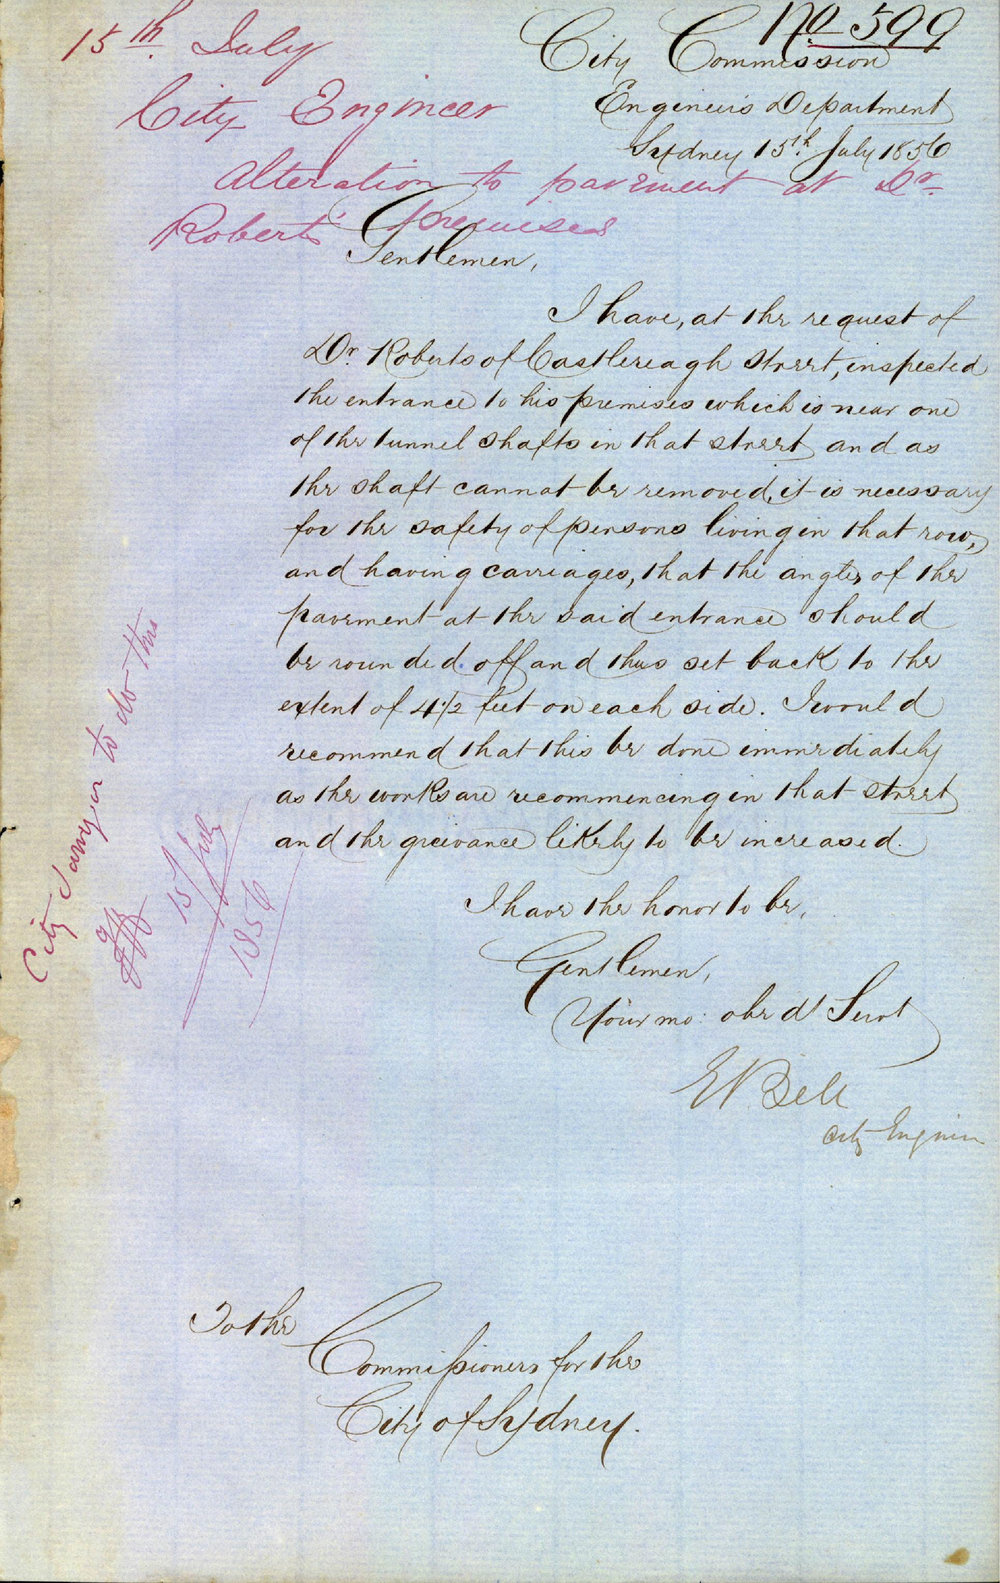 No 599
15th July
City Engineer
Alteration to pavement at Dr.
Roberts' premises
City Commission
Engineer's Department
Sydney 15th July 1856
Gentlemen,
I have, at the request of
Dr. Roberts of Castlereagh Street, inspected
the entrance to his premises which is near one
of the tunnel shafts in that street and as
the shaft cannot be removed, it is necessary
for the safety of persons living in that row,
and having carriages, that the angles of the
pavement at the said entrance should
be rounded off and thus set back to the
extent of 4 1/2 feet on each side. I would
recommend that this be done immediately
as the works are recommencing in that street
and the grievance likely to be increased.
I have the honor to be,
Gentlemen,
Your mo: obed't Servt
E Bell
City Engineer
City Surveyor to do this
15 July
1856
To the
Commissioners for the
City of Sydney.